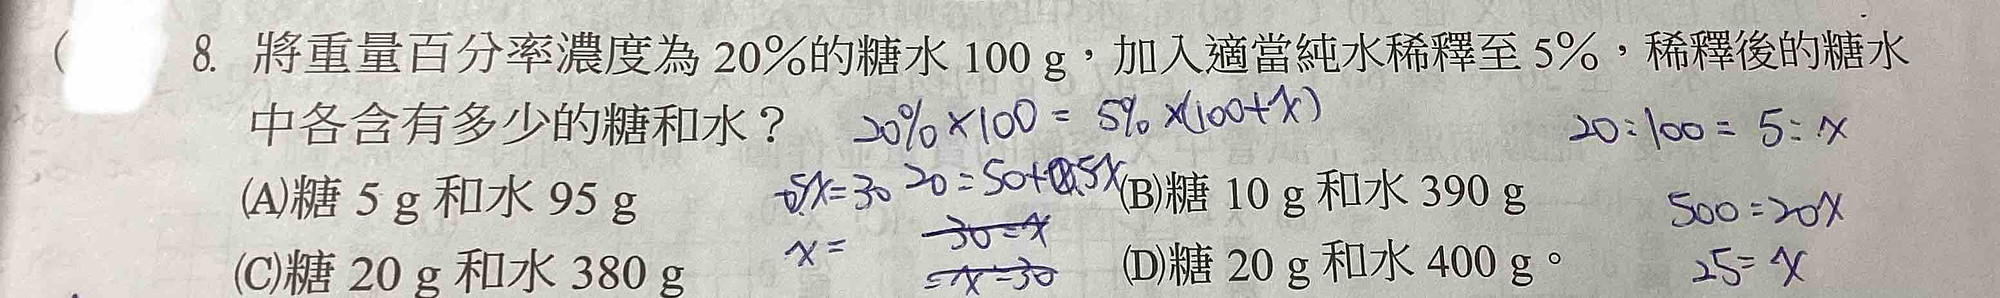 ( 8. 將重量百分率濃度為 20%的糖水 100 g，加入適當純水稀釋至 5%，稀釋後的糖水
中各含有多少的糖和水？ 20% × 100 = 5% ×(100+x) 20:100 = 5: x
(A)糖 5 g 和水 95 g x=30 20=50+ 5x (B)糖 10 g 和水 390 g 500=20x
(C)糖 20 g 和水 380 g x= 30=x =x=30 (D)糖 20 g 和水 400 g。 25=x